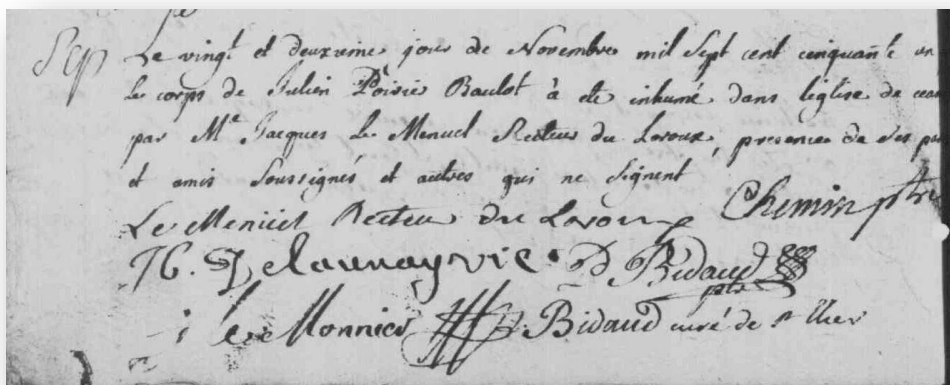 Sep Le vingt et deuxieme jour de Novembre mil Sept cent cinquante un
Le corps de Julien Poirier Baulot à ete inhumé dans leglise de ceans
par Mᵉ Jacques Le Menuel Recteur du Loroux, presence de Ses
et amis Soussignés et autres qui ne Signent
Le Menuel Recteur du Loroux Chemin ptre
Delaunay vic. Bidaud
ptre
Le Monnier Bidaud curé de